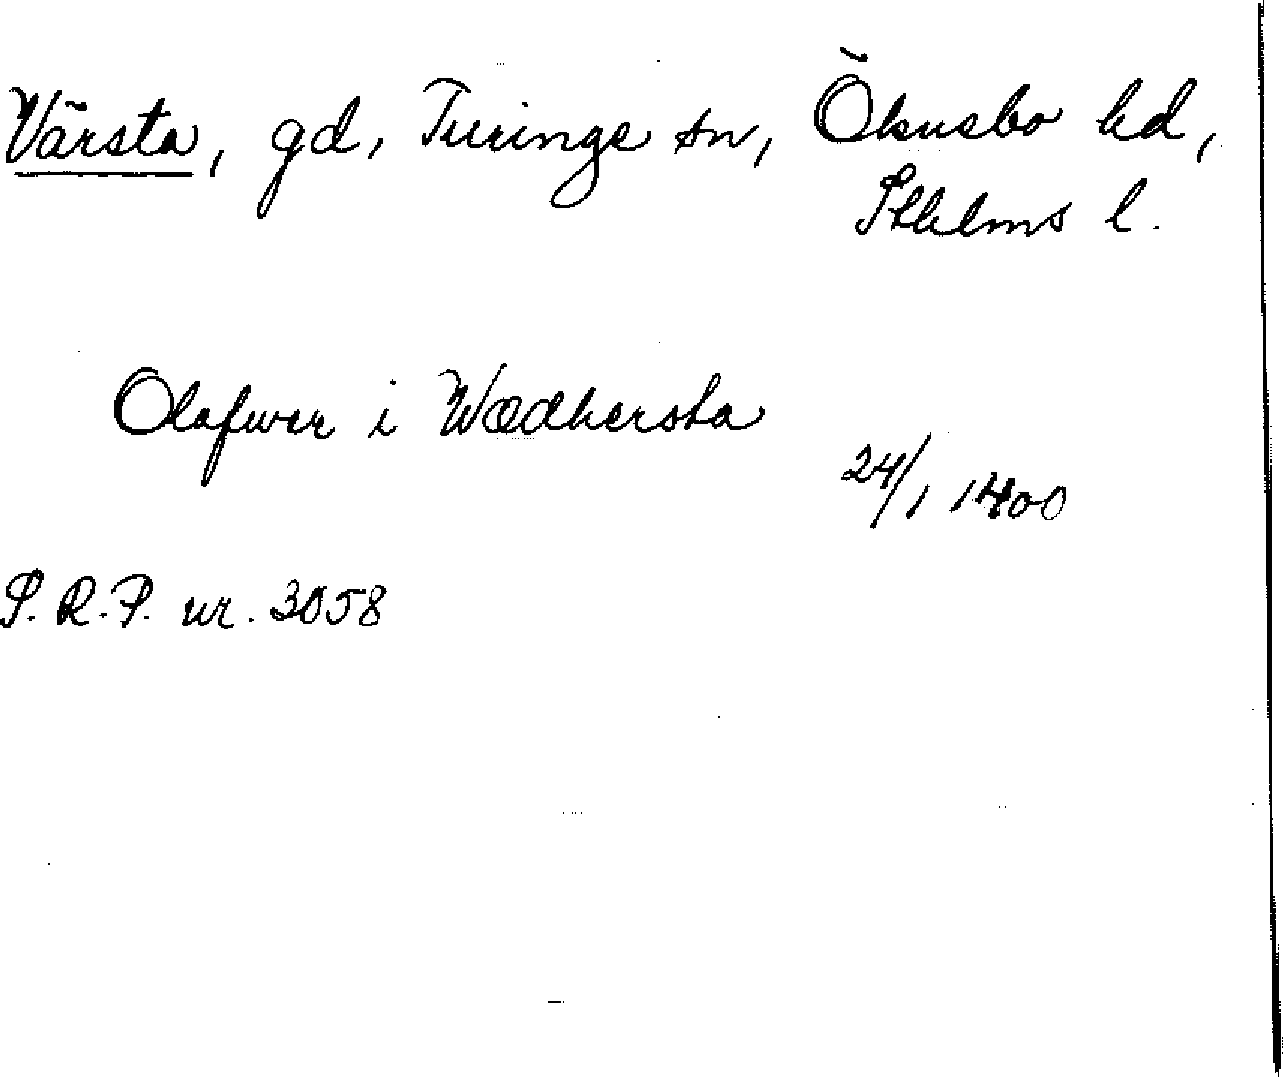 Värsta, gd, Turinge sn, Öknebo hd,
Sthlms l.
Olafwer i Wædhersta
24/1 1400
S. R. P. nr. 3058